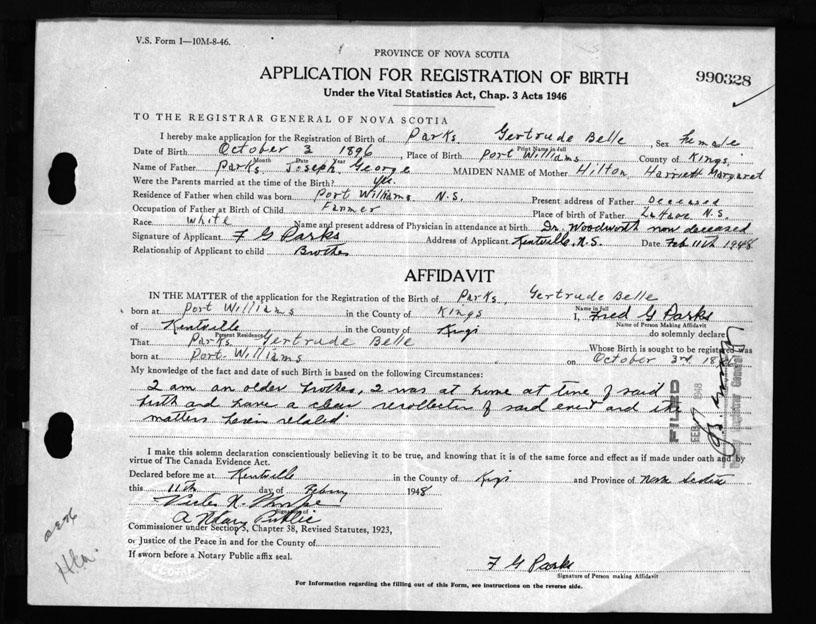 V.S. Form 1—10M-8-46.
PROVINCE OF NOVA SCOTIA
APPLICATION FOR REGISTRATION OF BIRTH
990328
Under the Vital Statistics Act, Chap. 3 Acts 1946
TO THE REGISTRAR GENERAL OF NOVA SCOTIA
I hereby make application for the Registration of Birth of Parks, Gertrude Belle, Sex Female
Print Name in full
Date of Birth October 3 1896, Place of Birth Port Williams County of Kings,
Month Date Year
Name of Father Parks, Joseph George MAIDEN NAME of Mother Hilton, Harriett Margaret
Were the Parents married at the time of the Birth? yes.
Residence of Father when child was born Port Williams N.S. Present address of Father Deceased
Occupation of Father at Birth of Child Farmer Place of birth of Father LaHave N.S.
Race White Name and present address of Physician in attendance at birth Dr. Woodworth now deceased
Signature of Applicant F G Parks Address of Applicant Kentville, N.S. Date Feb 11th 1948
Relationship of Applicant to child Brother
AFFIDAVIT
IN THE MATTER of the application for the Registration of the Birth of Parks, Gertrude Belle
Name in full
born at Port Williams in the County of Kings I, Fred G Parks
Name of Person Making Affidavit
of Kentville in the County of Kings do solemnly declare
Present Residence
That Parks Gertrude Belle Whose Birth is sought to be registered was
born at Port Williams on October 3rd 1896
My knowledge of the fact and date of such Birth is based on the following Circumstances:
I am an older brother, I was at home at time of said
birth and have a clear recollection of said event and the
matters herein related.
FILED
FEB 1948
Registrar General
I make this solemn declaration conscientiously believing it to be true, and knowing that it is of the same force and effect as if made under oath and by
virtue of The Canada Evidence Act.
Declared before me at Kentville in the County of Kings and Province of Nova Scotia
this 11th day of February 1948
Signature of
A Notary Public
Commissioner under Section 5, Chapter 38, Revised Statutes, 1923,
or Justice of the Peace in and for the County of
If sworn before a Notary Public affix seal.
F G Parks
Signature of Person making Affidavit
For Information regarding the filling out of this Form, see instructions on the reverse side.